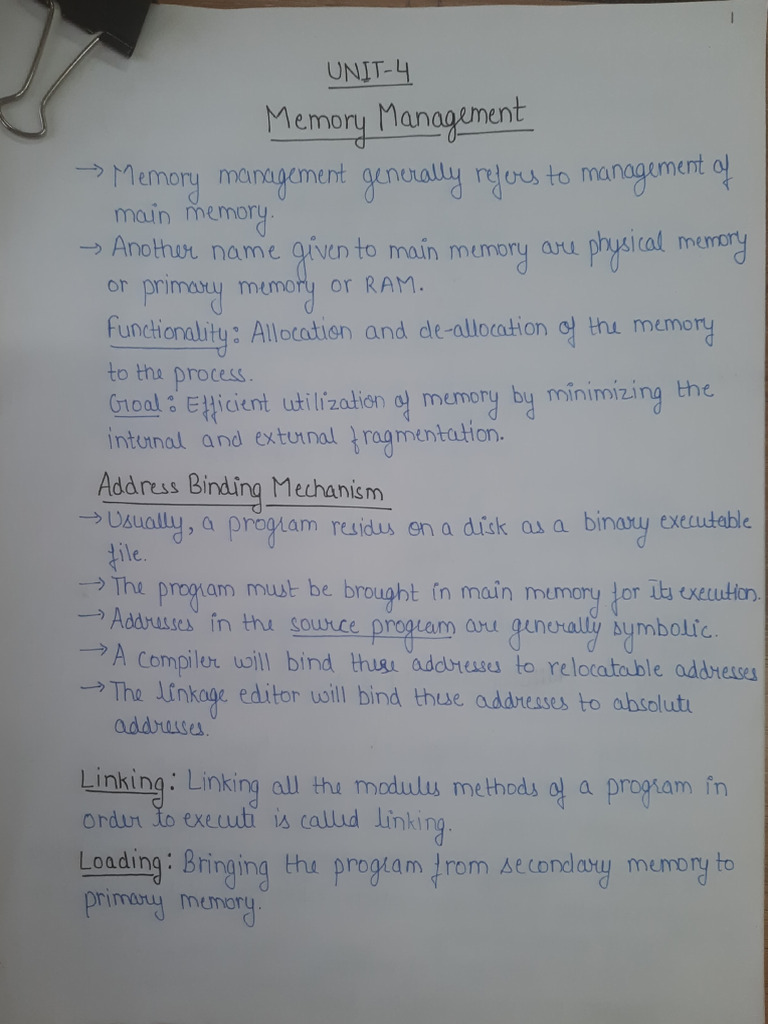 1
UNIT-4
Memory Management
→ Memory management generally refers to management of
main memory.
→ Another name given to main memory are physical memory
or primary memory or RAM.
Functionality: Allocation and de-allocation of the memory
to the process.
Goal: Efficient utilization of memory by minimizing the
internal and external fragmentation.
Address Binding Mechanism
→ Usually, a program resides on a disk as a binary executable
file.
→ The program must be brought in main memory for its execution.
→ Addresses in the source program are generally symbolic.
→ A compiler will bind these addresses to relocatable addresses
→ The linkage editor will bind these addresses to absolute
addresses.
Linking: Linking all the modules methods of a program in
order to execute is called linking.
Loading: Bringing the program from secondary memory to
primary memory.